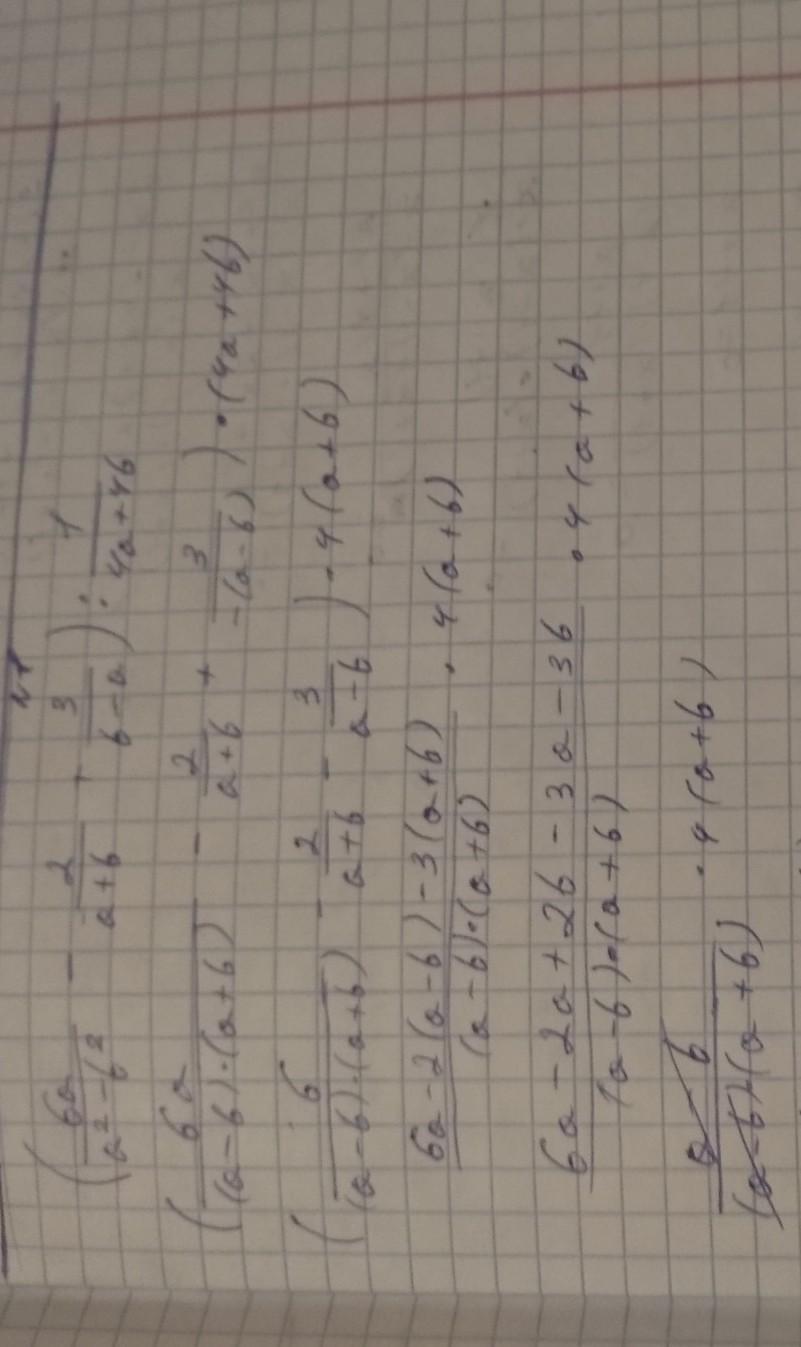 №1
(6a/(a² - b²) - 2/(a+b) + 3/(b-a)) : 1/(4a+4b)
(6a/((a-b)·(a+b)) - 2/(a+b) + 3/(-(a-b))) · (4a+4b)
(6/((a-b)·(a+b)) - 2/(a+b) - 3/(a-b)) · 4(a+b)
(6a-2(a-b)-3(a+b))/((a-b)·(a+b)) · 4(a+b)
(6a-2a+2b-3a-3b)/((a-b)·(a+b)) · 4(a+b)
(a-b)/((a-b)·(a+b)) · 4(a+b)